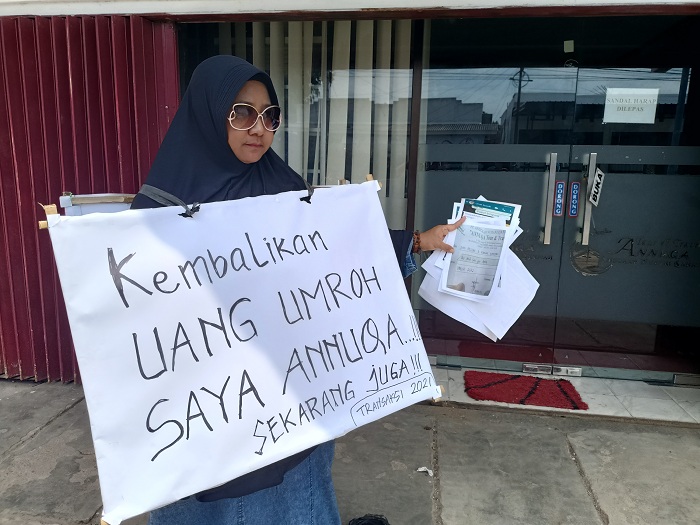 Kembalikan
UANG UMROH
SAYA ANNUQA...!!
SEKARANG JUGA!!!
TRANSAKSI 2021
SANDAL HARAP
DILEPAS
DORONG
DORONG
BUKA
ANNUQA